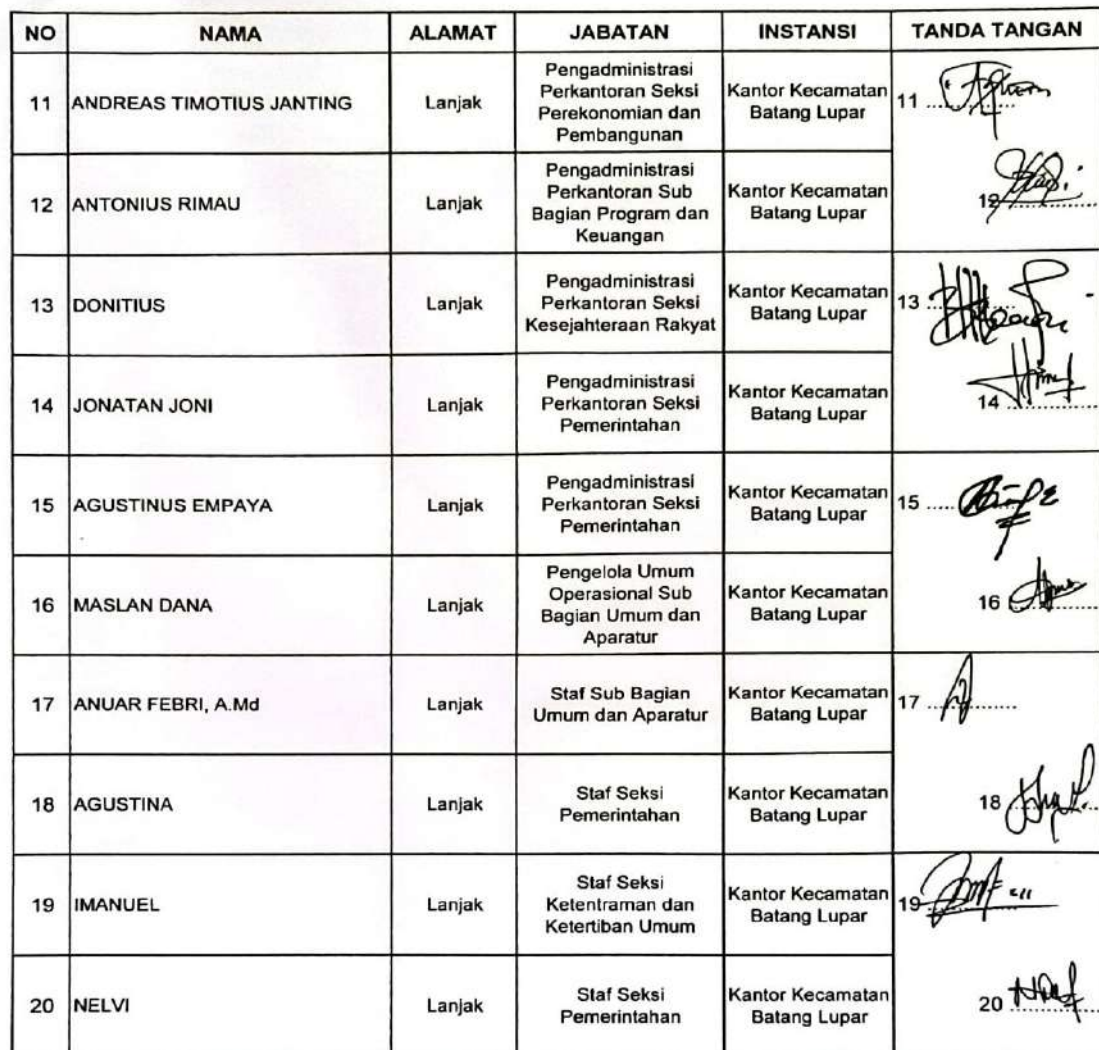 NO NAMA ALAMAT JABATAN INSTANSI TANDA TANGAN
11 ANDREAS TIMOTIUS JANTING Lanjak Pengadministrasi Perkantoran Seksi Perekonomian dan Pembangunan Kantor Kecamatan Batang Lupar 11 ..........
12 ANTONIUS RIMAU Lanjak Pengadministrasi Perkantoran Sub Bagian Program dan Keuangan Kantor Kecamatan Batang Lupar 12 ..........
13 DONITIUS Lanjak Pengadministrasi Perkantoran Seksi Kesejahteraan Rakyat Kantor Kecamatan Batang Lupar 13 ..........
14 JONATAN JONI Lanjak Pengadministrasi Perkantoran Seksi Pemerintahan Kantor Kecamatan Batang Lupar 14 ..........
15 AGUSTINUS EMPAYA Lanjak Pengadministrasi Perkantoran Seksi Pemerintahan Kantor Kecamatan Batang Lupar 15 ..........
16 MASLAN DANA Lanjak Pengelola Umum Operasional Sub Bagian Umum dan Aparatur Kantor Kecamatan Batang Lupar 16 ..........
17 ANUAR FEBRI, A.Md Lanjak Staf Sub Bagian Umum dan Aparatur Kantor Kecamatan Batang Lupar 17 ..........
18 AGUSTINA Lanjak Staf Seksi Pemerintahan Kantor Kecamatan Batang Lupar 18 ..........
19 IMANUEL Lanjak Staf Seksi Ketentraman dan Ketertiban Umum Kantor Kecamatan Batang Lupar 19 ..........
20 NELVI Lanjak Staf Seksi Pemerintahan Kantor Kecamatan Batang Lupar 20 ..........